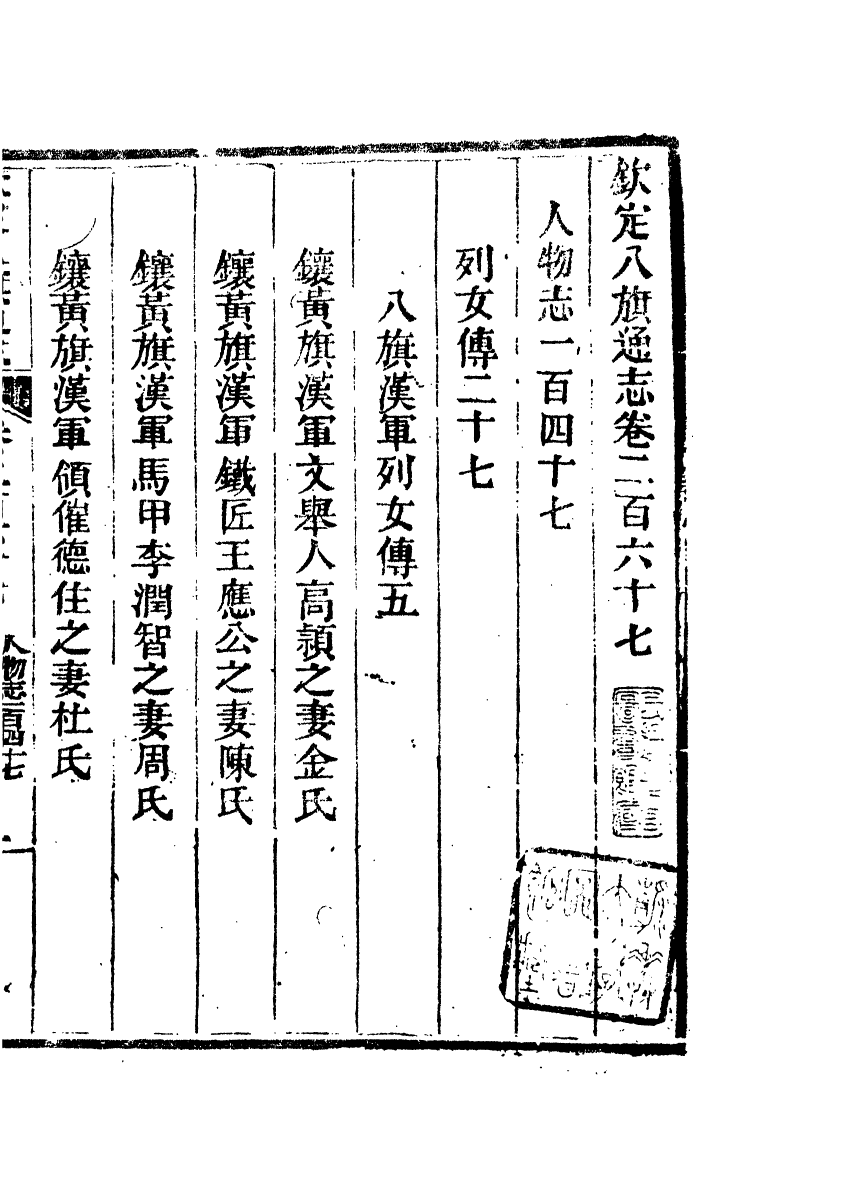 欽定八旗通志卷二百六十七
人物志一百四十七
列女傳二十七
八旗漢軍列女傳五
鑲黃旗漢軍文舉人高頴之妻金氏
鑲黃旗漢軍鐵匠王應公之妻陳氏
鑲黃旗漢軍馬甲李潤智之妻周氏
鑲黃旗漢軍領催德住之妻杜氏
人物志一百四十七